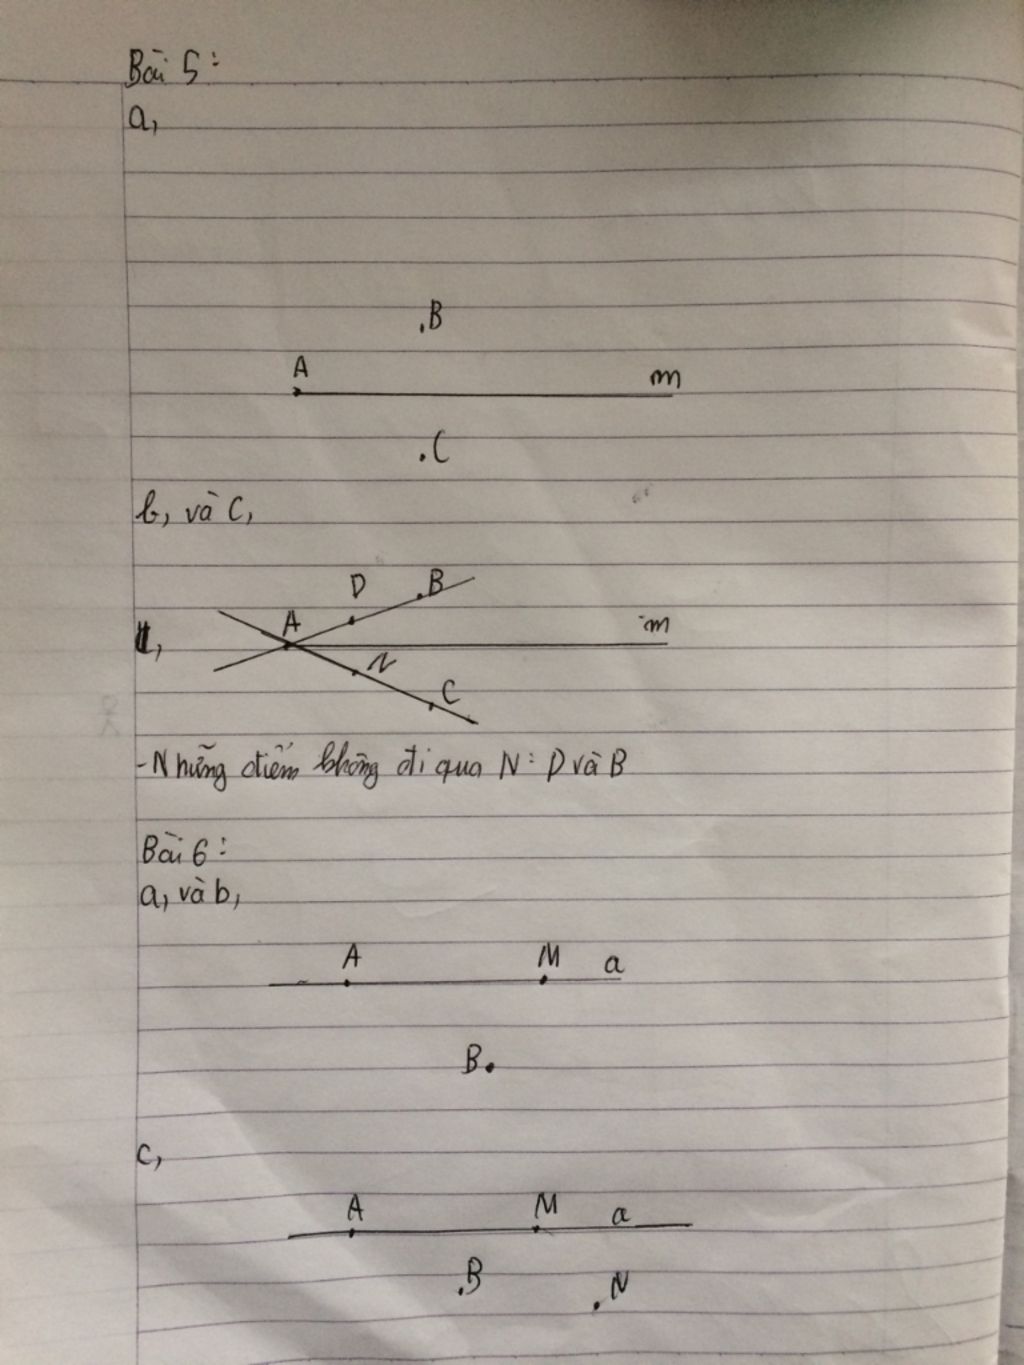 Bài 5:
a,
B
A
m
C
b, và c,
D
B
A
m
N
C
-Những điểm không đi qua N: D và B
Bài 6:
a, và b,
A
M
a
B
c,
A
M
a
B
N